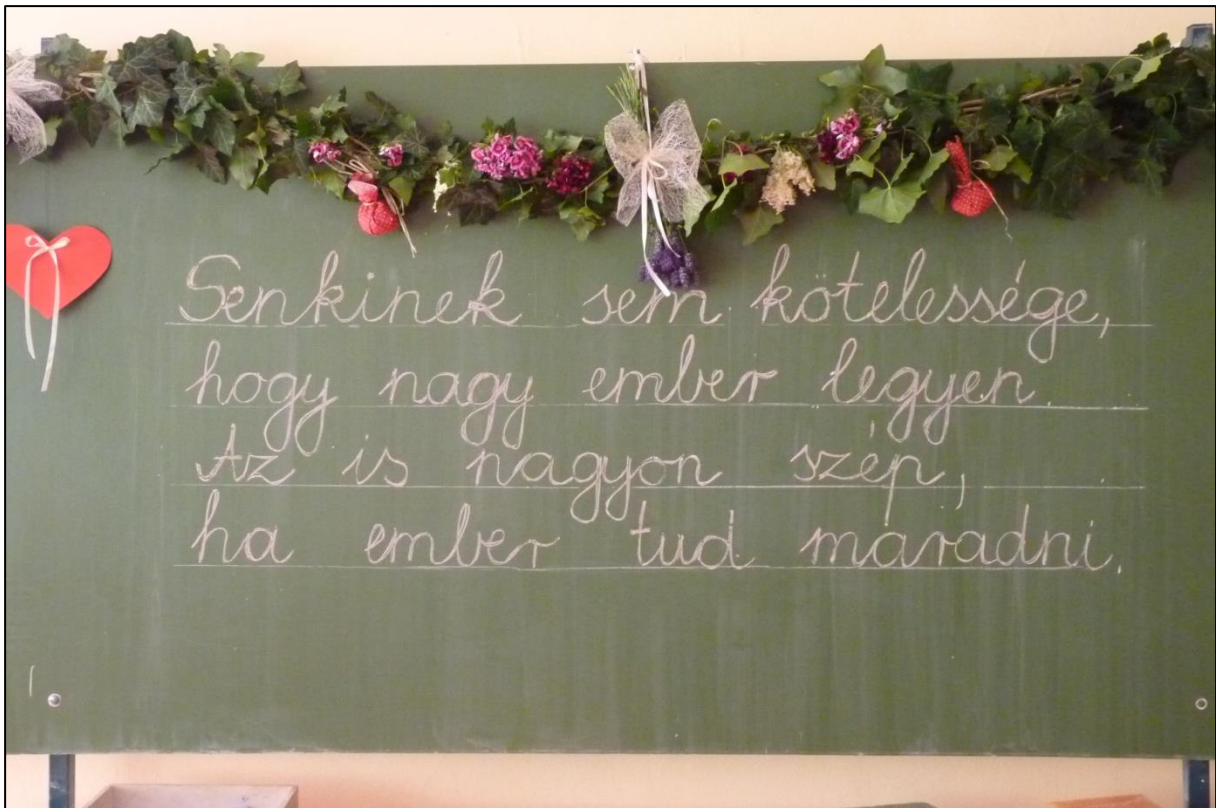 Senkinek sem kötelessége,
hogy nagy ember legyen.
Az is nagyon szép,
ha ember tud maradni.